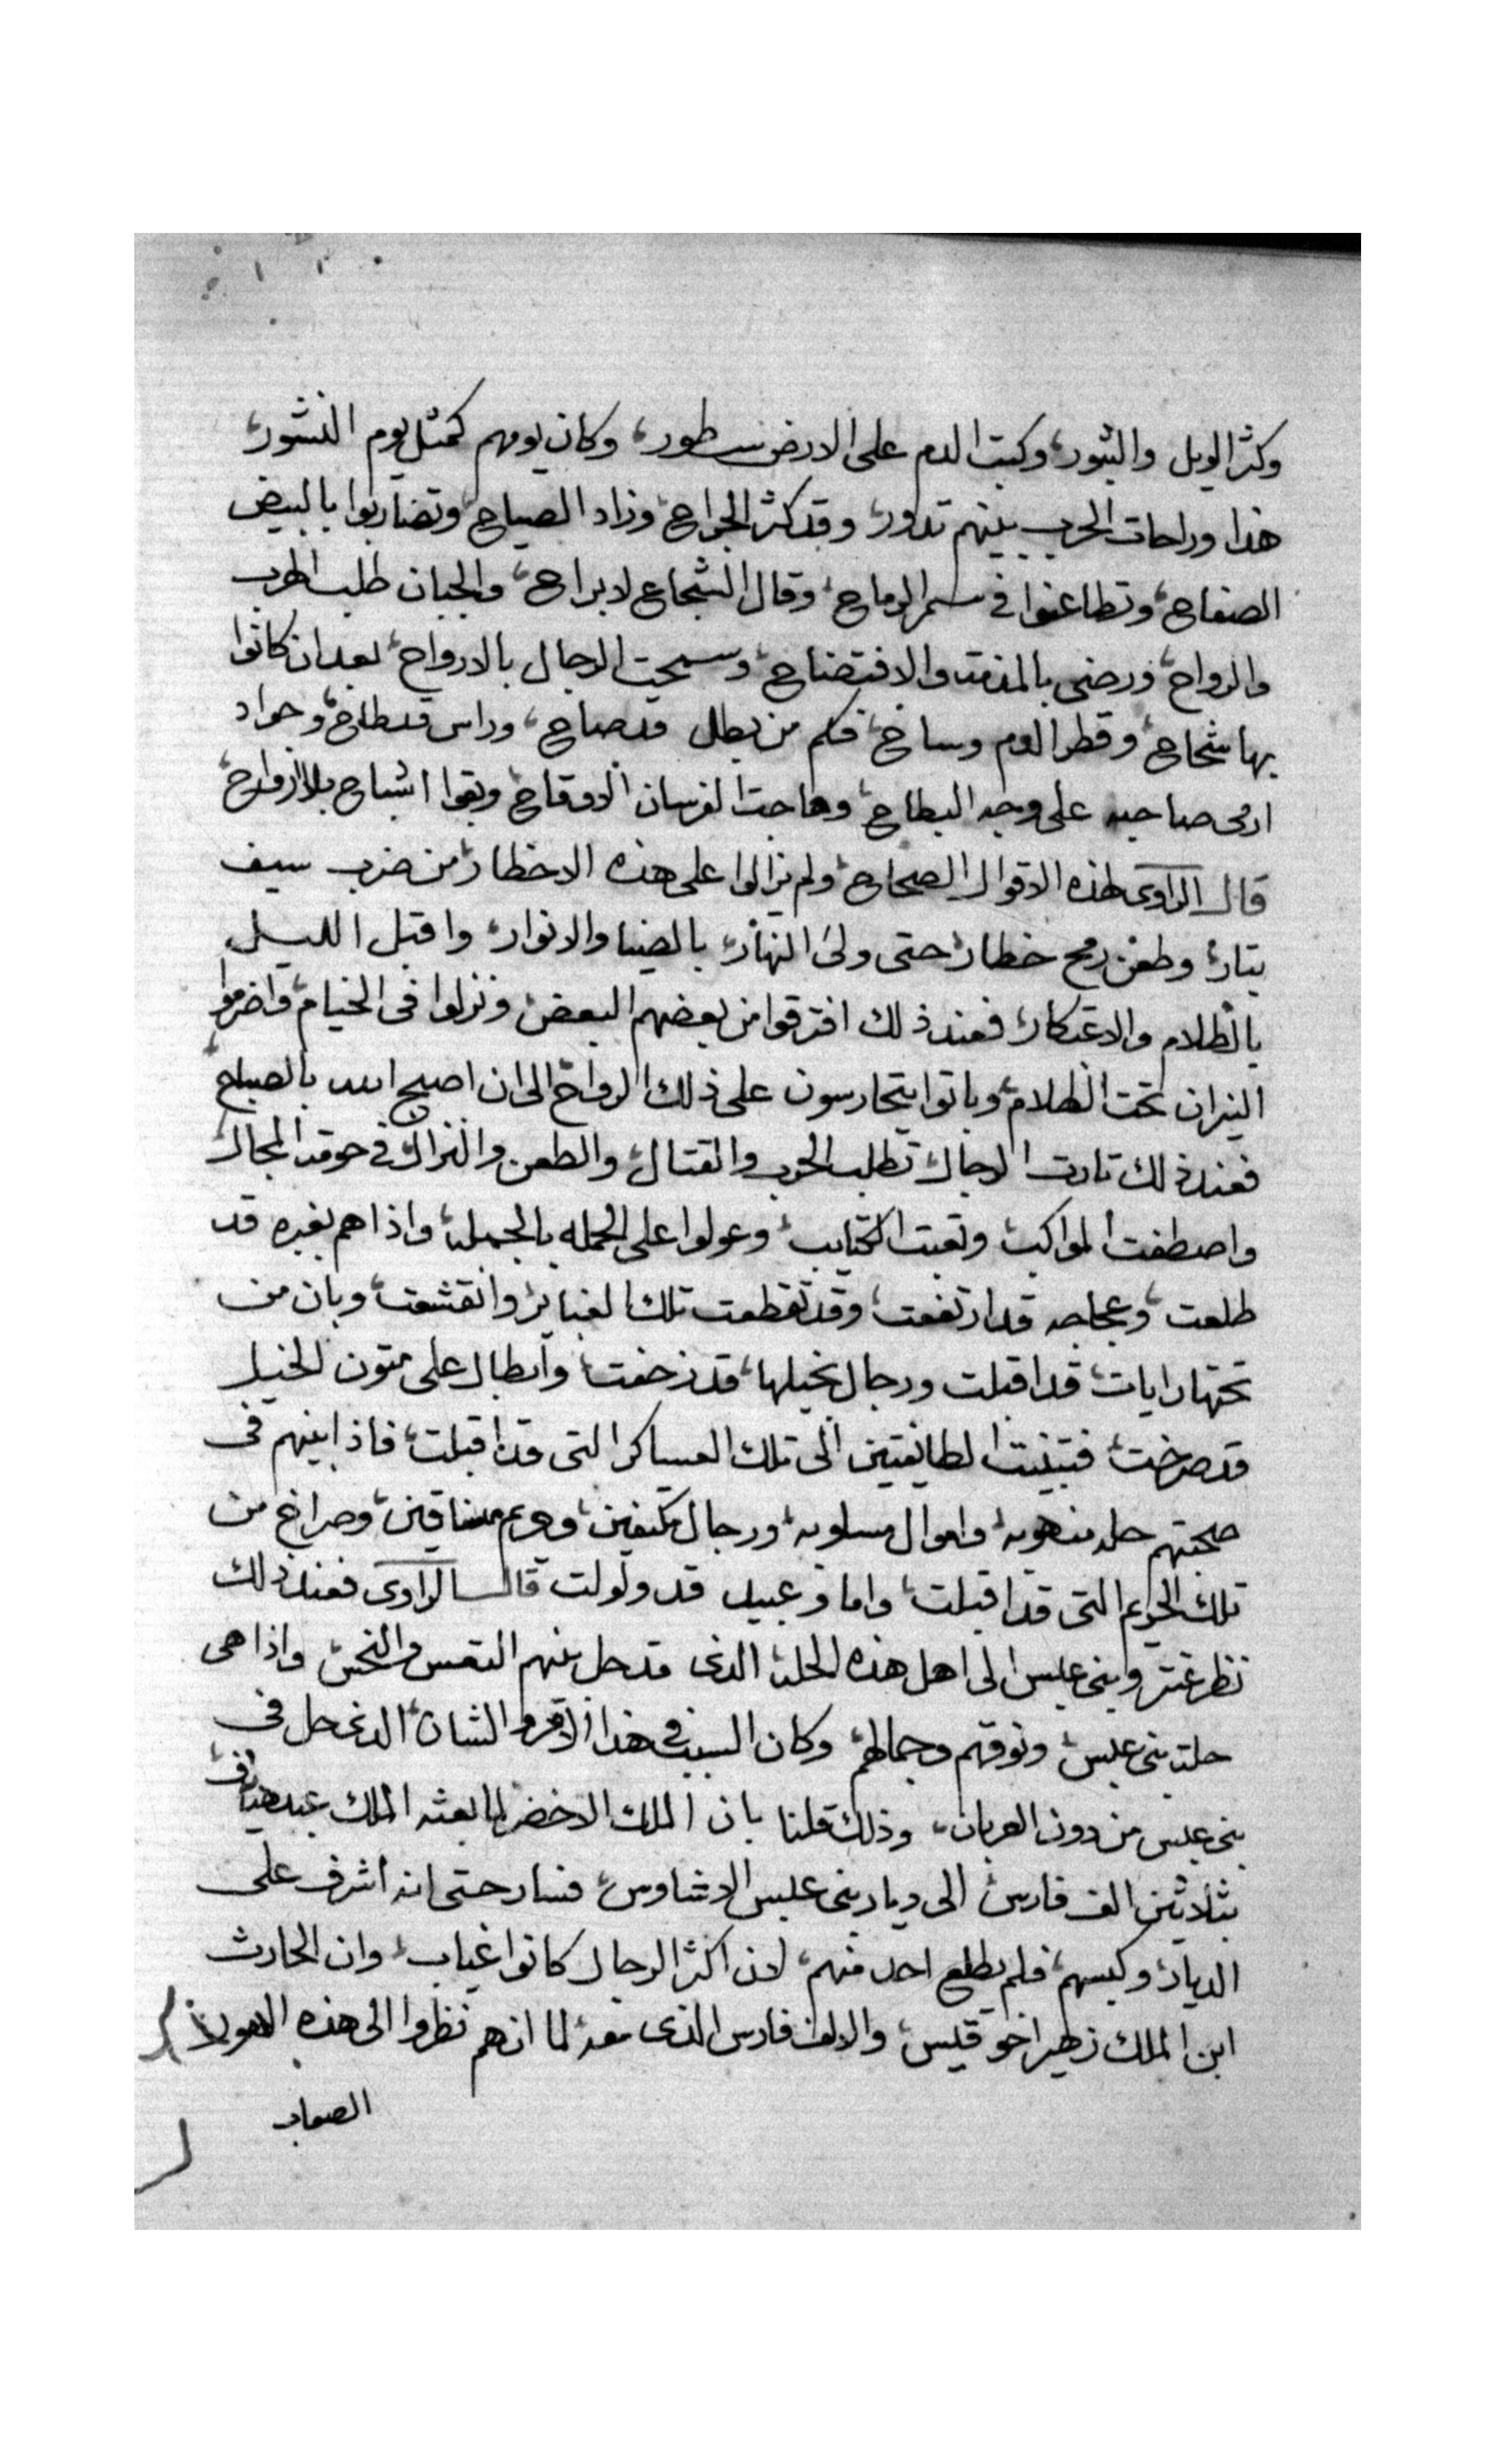 وكثر الويل والثبور، وكتب الدم على الارض سطور، وكان يومهم كمثل يوم النشور،
هذا وراحات الحرب بينهم تدور، وقد كثر الجراح، وزاد الصياح، وتضاربوا بالبيض
الصفاح، وتطاعنوا في سمر الرماح، وقال الشجاع لا براح، والجبان طلب الهرب
والرواح، ورضى بالمذمه والافتضاح، وسمحت الرجال بالارواح، بعد ان كانوا
بها شحاح، وقطر الدم وساح، فكم من بطل قد صاح، وراس قد طاح، وجواد
ارمى صاحبه على وجه البطاح، وهاجت الفرسان الاوقاح، وبقوا اشباح بلا ارواح،
قال الراوى لهذه الاقوال الصحاح، ولم يزالوا على هذه الاخطار، من ضرب سيف
بتار، وطعن رمح خطار، حتى ولى النهار، بالضيا والانوار، واقبل الليل
بالظلام والاعتكار، فعند ذلك افترقوا من بعضهم البعض، ونزلوا فى الخيام، واضرموا
النيران تحت الظلام، وباتوا يتحارسون على ذلك الرواح، الى ان اصبح الله بالصباح،
فعند ذلك ثارت الرجال، تطلب الحرب والقتال، والطعن والنزال، في حومة المجال،
واصطفت المواكب، وتعبت الكتايب، وعولوا على الحمله بالجمله، واذا هم بغبره قد
طلعت، وعجاجه قد ارتفعت، وقد تقطعت تلك الغباير، وانقشعت، وبان من
تحتها رايات، قد اقبلت ورجال بخيلها، قد زحفت، وابطال على متون الخيل
قد صرخت، فتبينت الطايفتين الى تلك العساكر التى قد اقبلت، فاذا بينهم فى
صحبتهم حله منهوبه، واموال مسلوبه، ورجال مكتفين، وحريم منساقين، وصراخ من
تلك الحريم التى قد اقبلت، واما وعبيد قد ولولت قال الراوى فعند ذلك
نظر عنتر وبنى عبس الى اهل هذه الحلة، الذى قد حل بينهم التعس والنحس، واذا هى
حلة بنى عبس، ونوقهم وجمالهم، وكان السبب في هذا الامر والشان، الذى حل فى
بنى عبس من دون العربان، وذلك قلنا بان الملك الاخضر لما بعثه الملك عبد هياف
بثلاثين الف فارس، الى ديار بنى عبس الاشاوس، فسار حتى انه اشرف على
الديار، وكبسهم، فلم يطلع احد منهم، لان اكثر الرجال كانوا غياب، وان الحارث
ابن الملك زهير اخو قيس، والالف فارس الذى معه، لما انهم نظروا الى هذه الامور
الصعاب